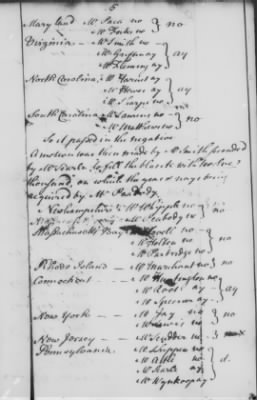 5
Maryland Mr Paca no } no
Mr Forbes no
Virginia - Mr Smith no
Mr Griffin ay } ay
Mr Fleming ay
North Carolina - Mr Harnett ay
Mr Hewes ay } ay
Mr Sharpe no
South Carolina - Mr Laurens no } no
Mr Mathews no
So it passed in the negative
A motion was then made by Mr Smith seconded
by Mr to fill the blank with twelve
thousand, on which the yeas & nays being
required by Mr Peabody
Newhampshire - Mr Whipple no } no
Mr Peabody no
Massachusetts Bay Lovell no
Mr Holten no } no
Mr Partridge no
Rhode Island - Mr Marchant no } no
Connecticut - Mr Huntington no
Mr Root ay } ay
Mr Spencer ay
New York - Mr Jay no } no
no
New Jersey - Mr Scudder no }
Pennsylvania Mr Shippen no
Mr Atlee no } d.
Mr Searle ay
Mr Wynkoop ay